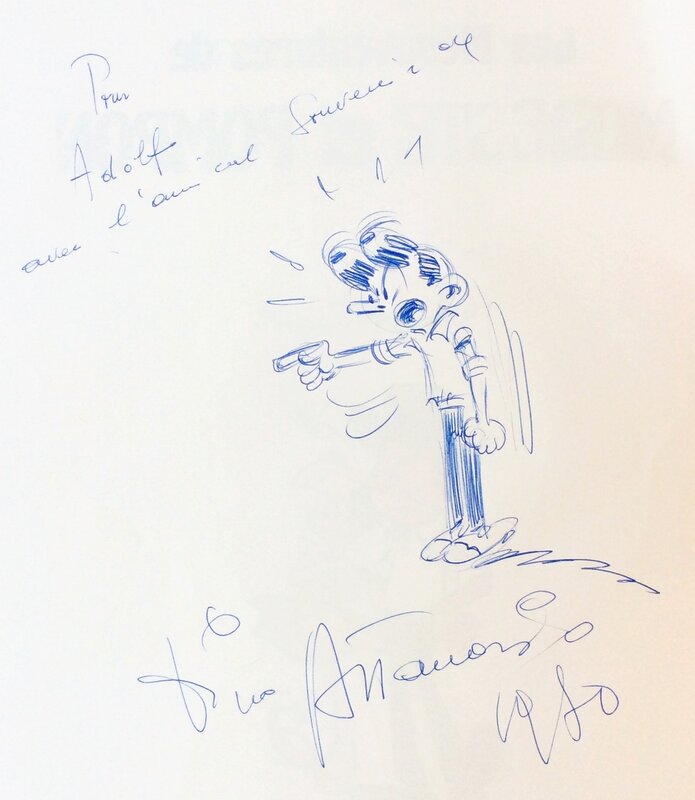 Pour
Adolf
avec l'amical Souvenir de
Dino Attanasio
1980